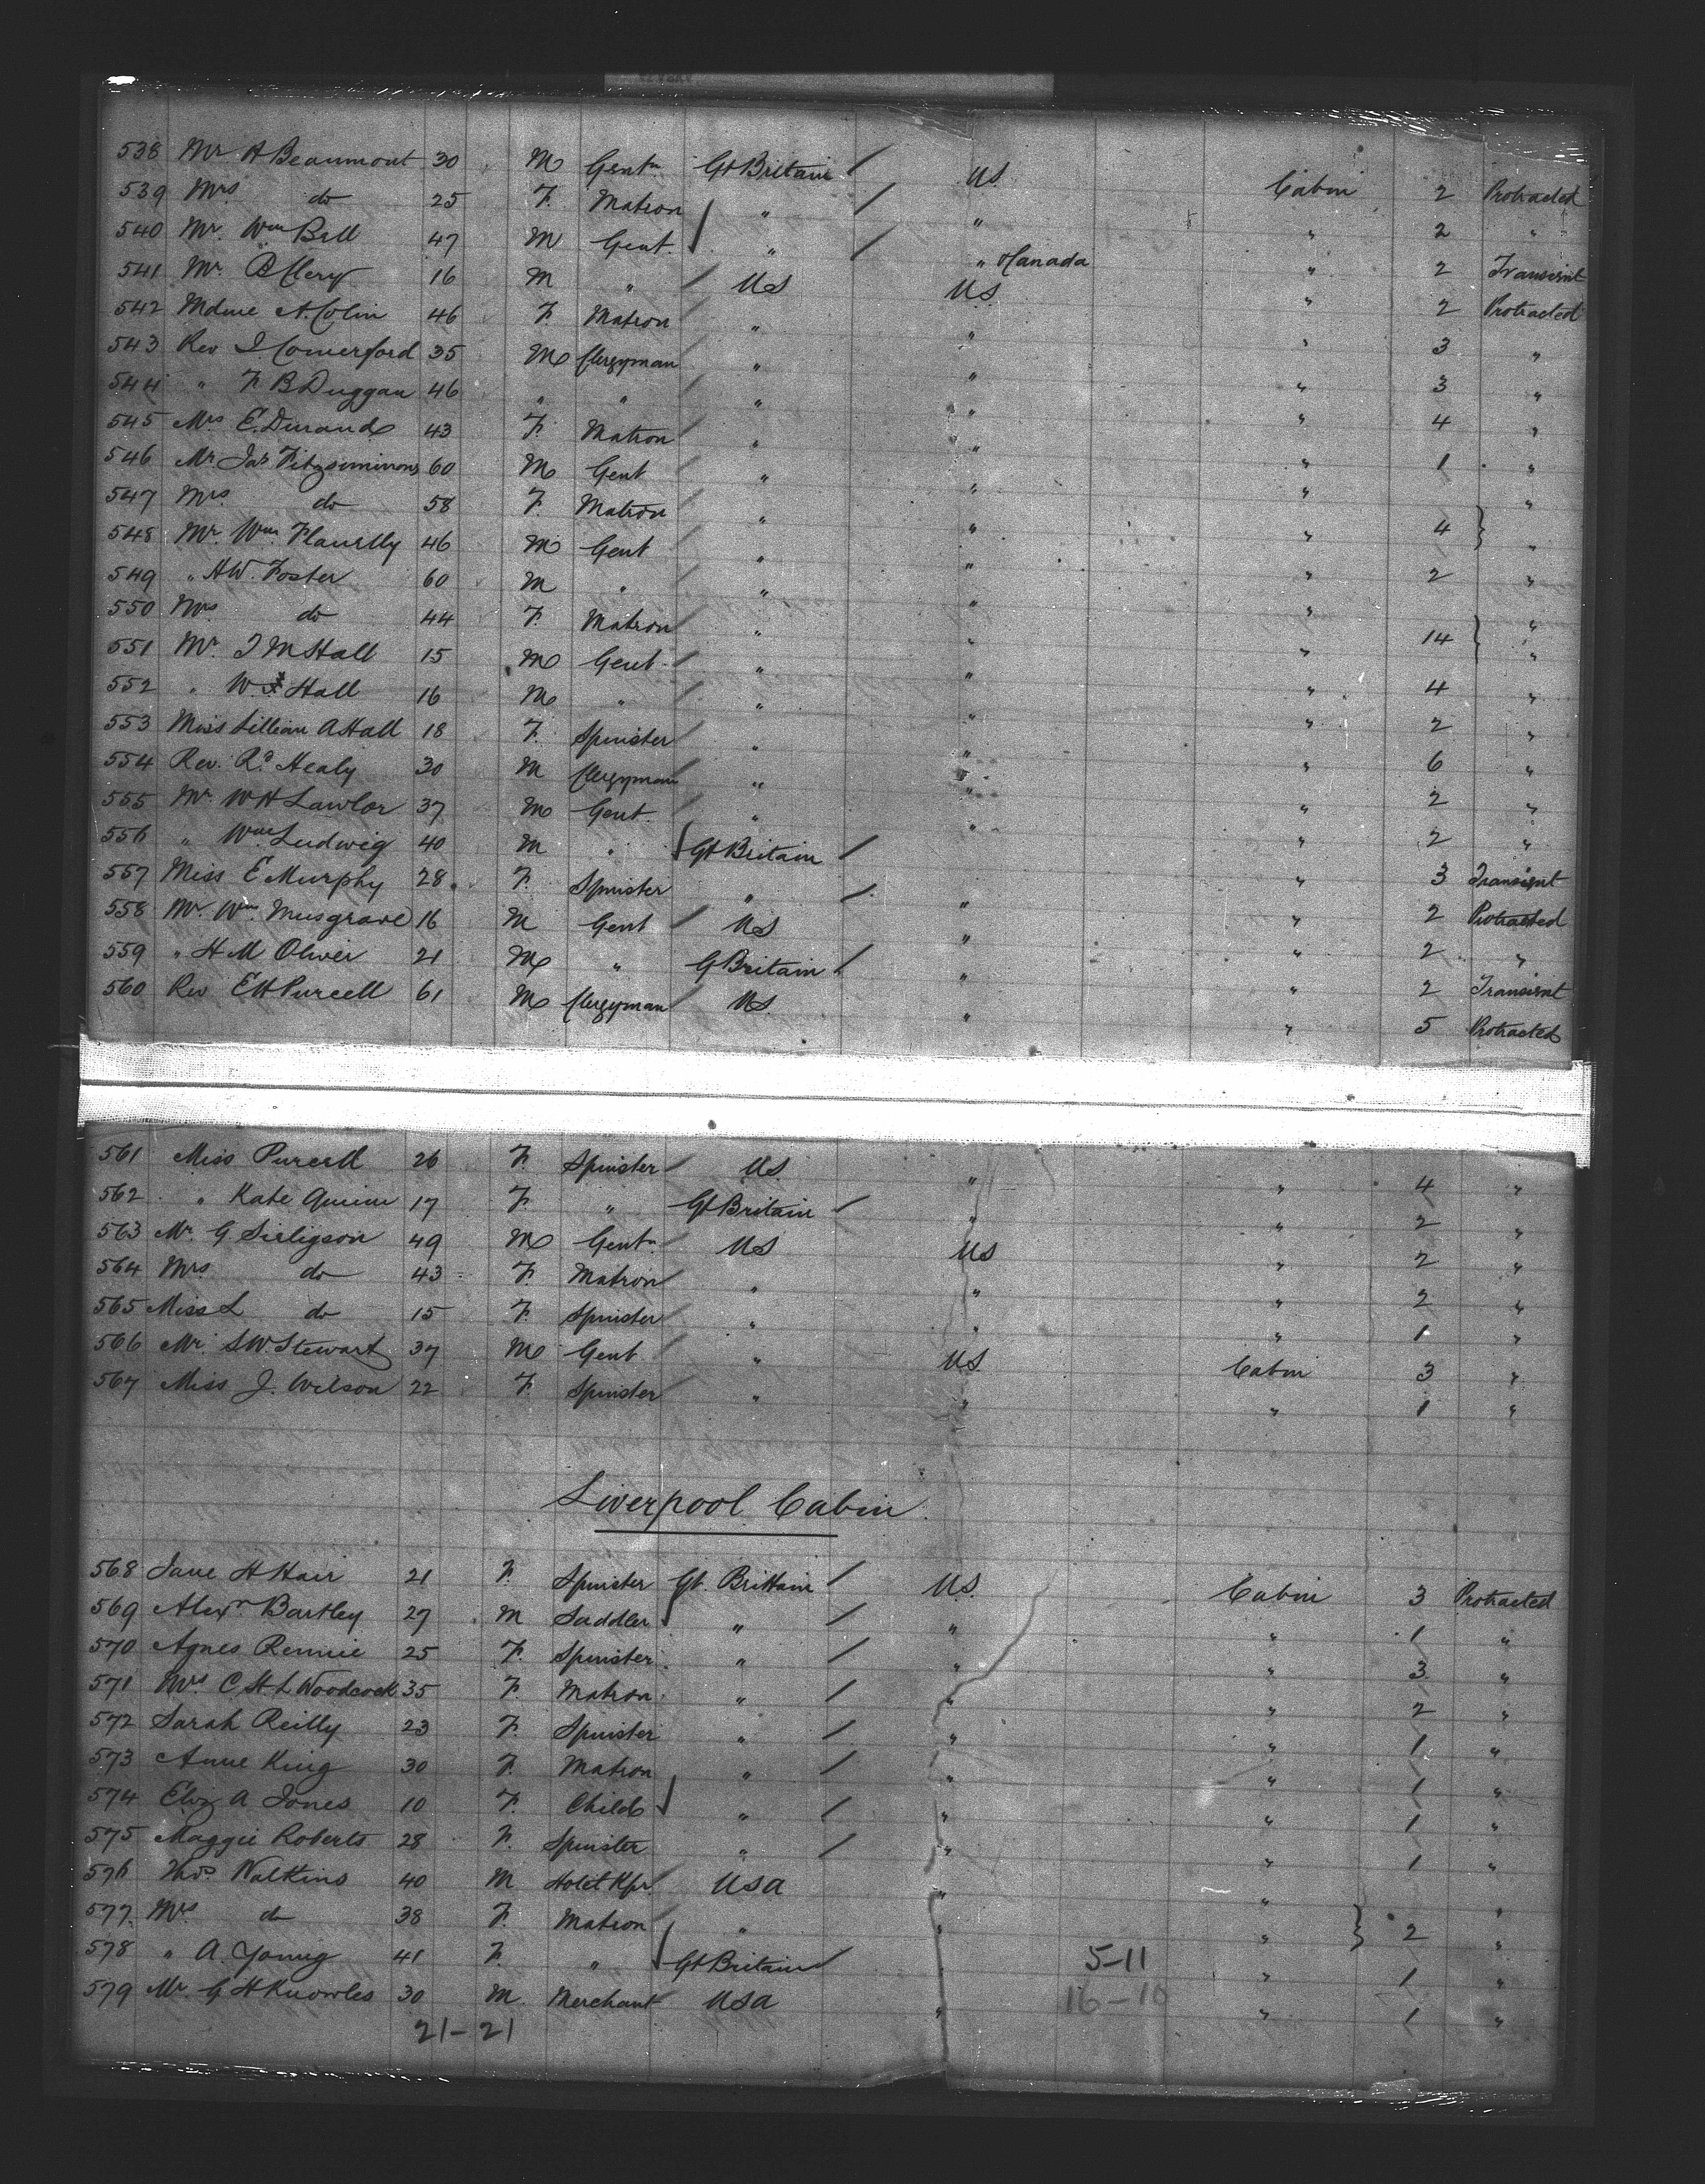 538 Mr A Beaumont 30 M Gentn Gt Britain / US Cabin 2 Protracted
539 Mrs do 25 F. Matron " / " " 2 "
540 Mr. Wm Bell 47 M Gent. " / " Canada " 2 Transient
541 Mr. B Clery 16 M " / US US " 2 Protracted
542 Mdme A. Colin 46 F. Matron " " " 3 "
543 Rev J Comerford 35 M Clergyman " " " 3 "
544 " F B Duggan 46 " " " " " 4 "
545 Mrs E. Durand 43 F. Matron " " " 1 "
546 Mr. Jas Fitzsimmons 60 M Gent " " " "
547 Mrs do 58 F. Matron " " " 4 } "
548 Mr. Wm. 46 M Gent " " " 2 "
549 " AW. Foster 60 M " " " " "
550 Mrs do 44 F. Matron " " " 14 } "
551 Mr. J M Hall 15 M Gent " " " 4 "
552 " W. Hall 16 M " " " " 2 "
553 Miss Lillian A Hall 18 F. Spinster " " " 6 "
554 Rev. Rd Healy 30 M Clergyman " " " 2 "
555 Mr. W H Lawlor 37 M Gent. " " " 2 "
556 " Wm Ludwig 40 M " Gt Britain / " 3 Transient
557 Miss E Murphy 28 F. Spinster " / " " 2 Protracted
558 Mr. Wm. Musgrave 16 M Gent / US " " 2 "
559 " H M Oliver 21 M " G Britain / " " 2 Transient
560 Rev E H Purcell 61 M Clergyman US " " 5 Protracted
561 Miss Purcell 26 F. Spinster / US " " 4 "
562 " Kate Quinn 17 F. " Gt Britain / " " 2 "
563 Mr G. Sirligson 49 M Gentn / US US " 2 "
564 Mrs do 43 F. Matron " " " 2 "
565 Miss L do 15 F. Spinster " " " 1 "
566 Mr. S.W. Stewart 37 M Gent / " US Cabin 3 "
567 Miss J. Wilson 22 F. Spinster / " " " 1 "
Liverpool Cabin
568 Jane H Hair 21 F. Spinster Gt. Brittain / US. Cabin 3 Protracted
569 Alexr Bartley 27 M Saddler " / " " 1 "
570 Agnes Rennie 25 F. Spinster " / " " 3 "
571 Mrs C. H. L Woodcock 35 F. Matron " / " " 2 "
572 Sarah Reilly 23 F. Spinster " / " " 1 "
573 Anne King 30 F. Matron " / " " 1 "
574 Eliz A Jones 10 F. Child " / " " 1 "
575 Maggie Roberts 28 F. Spinster " / " " 1 "
576 Thos Watkins 40 M Hotel Kpr. / USA " " "
577 Mrs do 38 F. Matron / " " " } 2 "
578 " A. Young 41 F. " Gt Britain / " 1 "
579 Mr. G H Knowles 30 M. Merchant USA " " 1 "
5-11
16-10
21-21